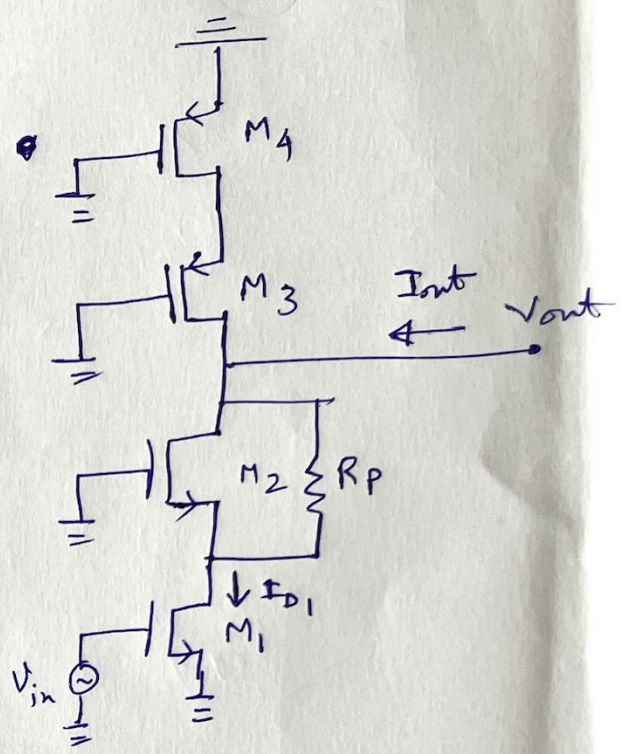 M4
M3
Iout
Vout
M2
RP
ID1
M1
Vin